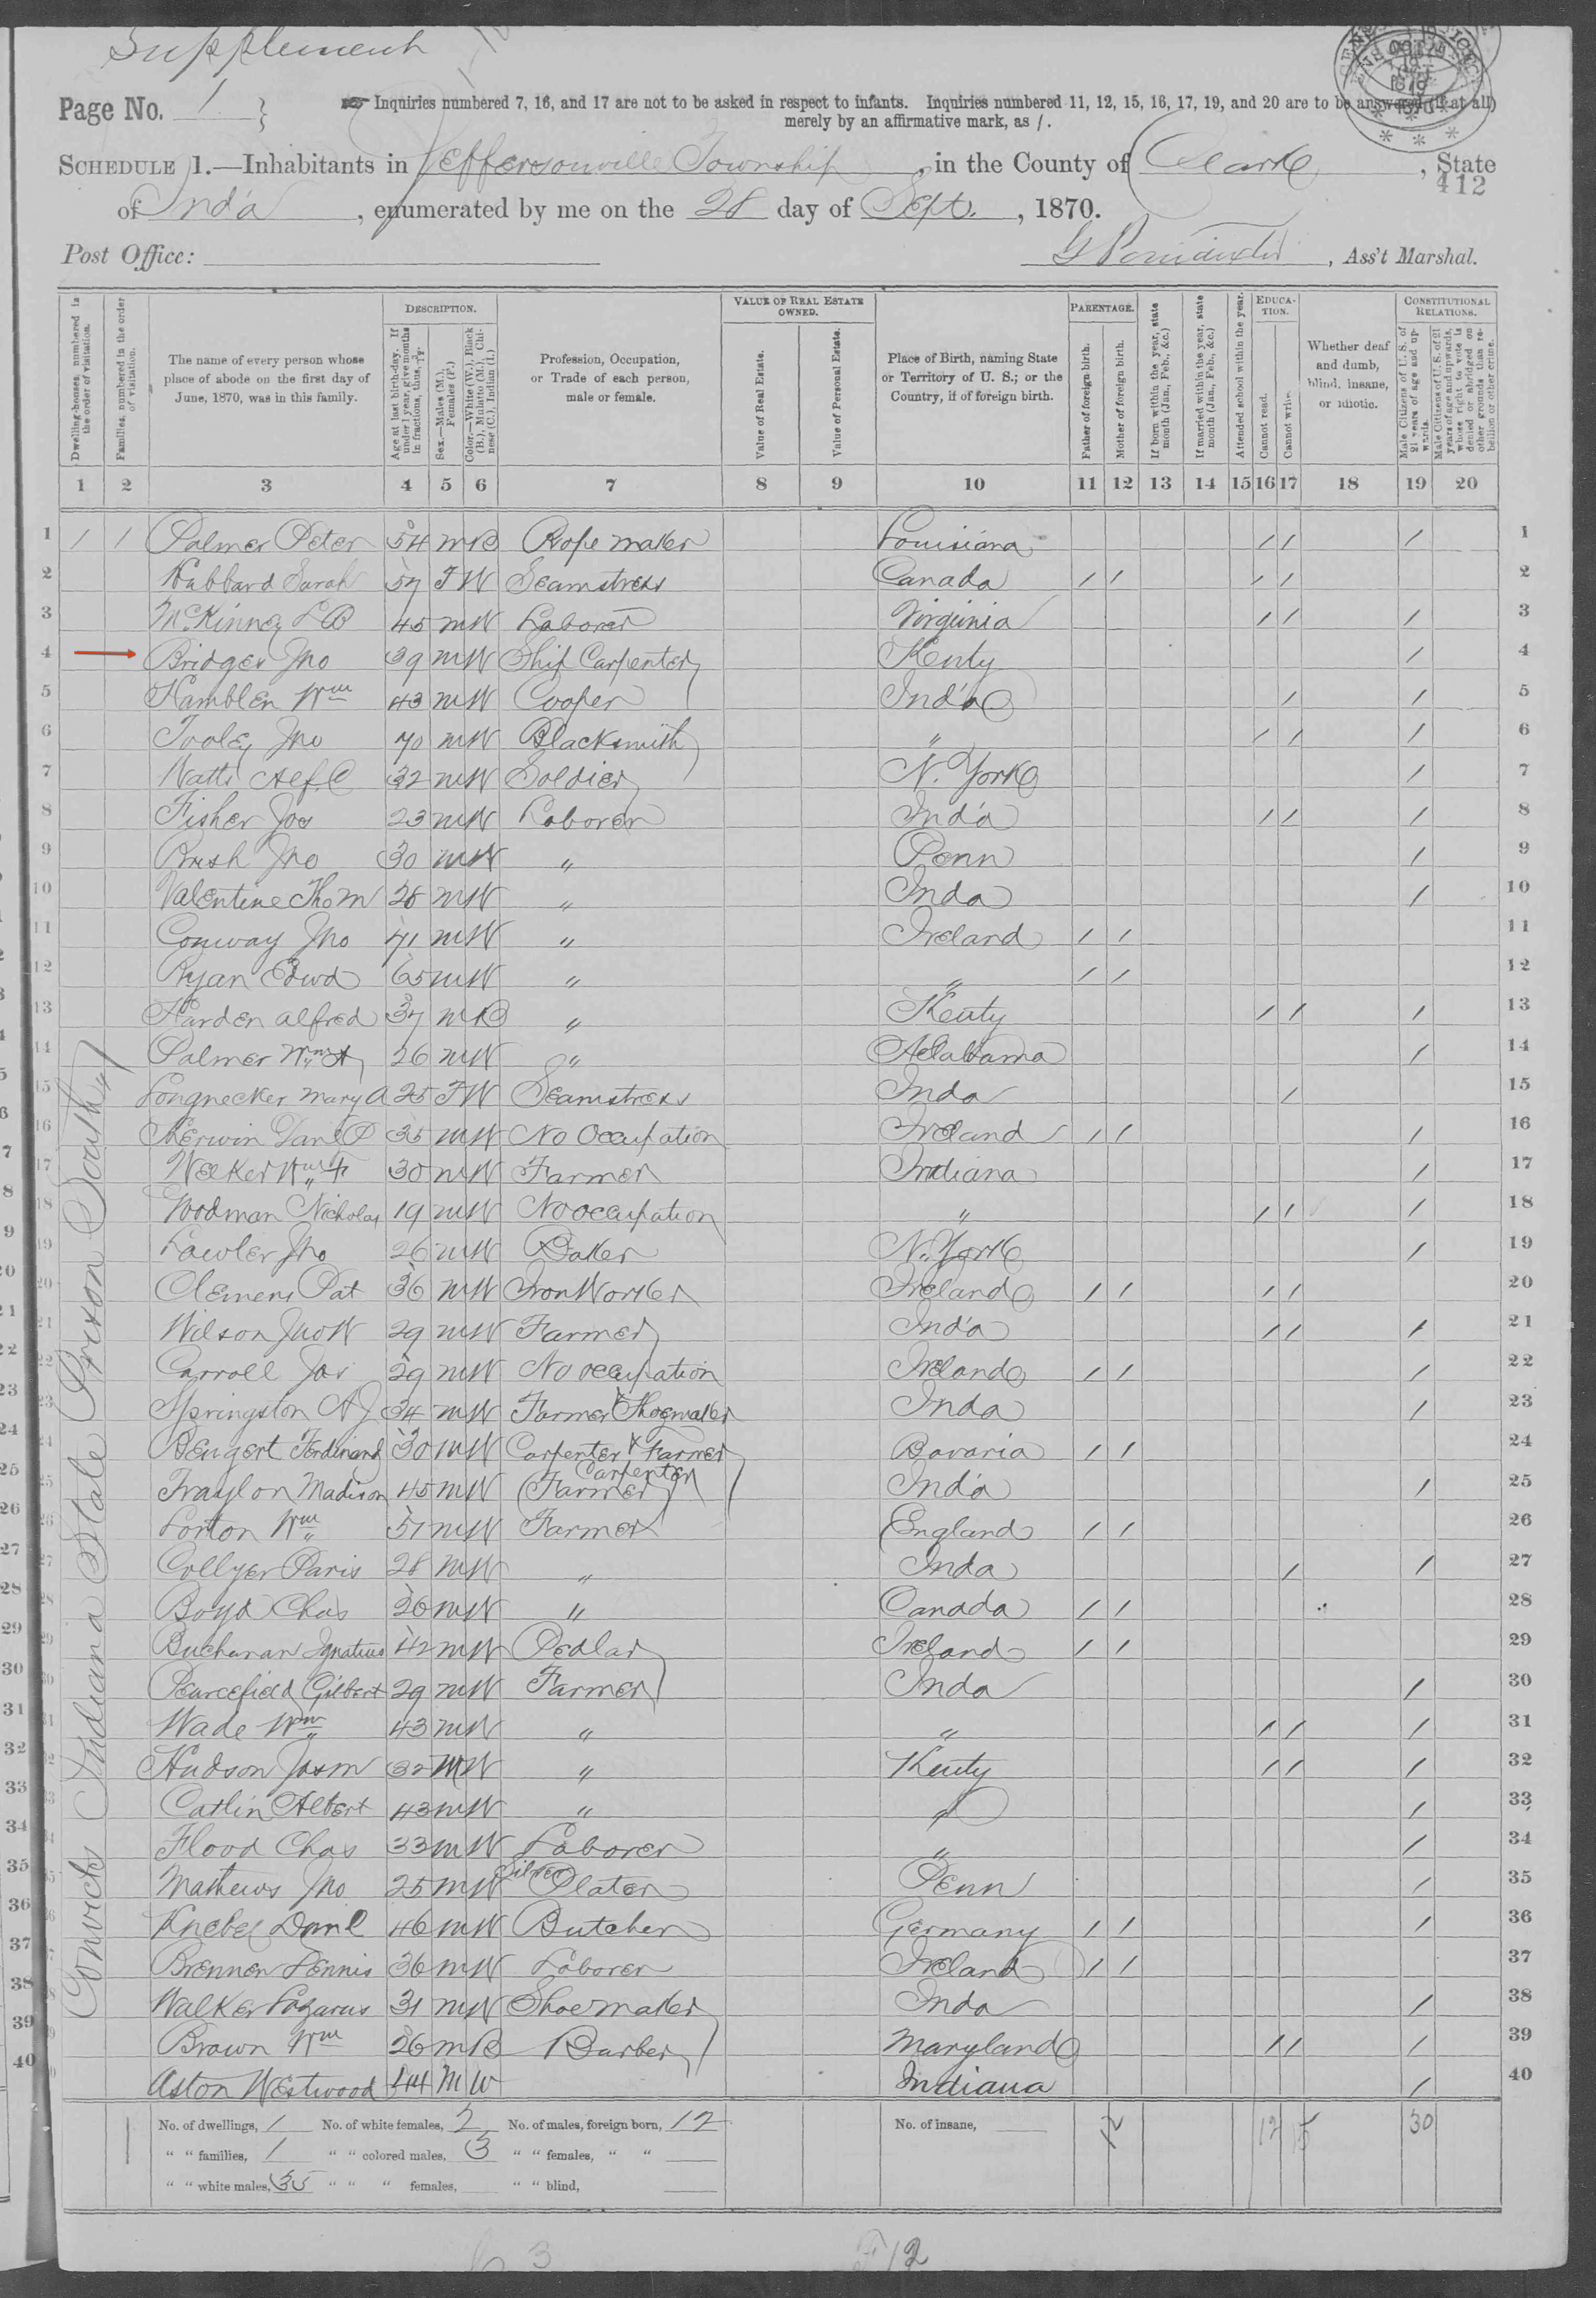 Supplement
Page No. 1
Inquiries numbered 7, 16, and 17 are not to be asked in respect to infants. Inquiries numbered 11, 12, 15, 16, 17, 19, and 20 are to be answered (if at all)
merely by an affirmative mark, as /.
SCHEDULE 1.—Inhabitants in Jeffersonville Township, in the County of Clark, State
412
of Inda, enumerated by me on the 28 day of Sept., 1870.
Post Office: , Ass't Marshal.
Dwelling-houses, numbered in the order of visitation.
Families, numbered in the order of visitation.
The name of every person whose place of abode on the first day of June, 1870, was in this family.
DESCRIPTION.
Age at last birth-day. If under 1 year, give months in fractions, thus, 3/12.
Sex.—Males (M.), Females (F.)
Color.—White (W.), Black (B.), Mulatto (M.), Chinese (C.), Indian (I.)
Profession, Occupation, or Trade of each person, male or female.
VALUE OF REAL ESTATE OWNED.
Value of Real Estate.
Value of Personal Estate.
Place of Birth, naming State or Territory of U. S.; or the Country, if of foreign birth.
PARENTAGE.
Father of foreign birth.
Mother of foreign birth.
If born within the year, state month (Jan., Feb., &c.)
If married within the year, state month (Jan., Feb., &c.)
Attended school within the year.
EDUCATION.
Cannot read.
Cannot write.
Whether deaf and dumb, blind, insane, or idiotic.
CONSTITUTIONAL RELATIONS.
Male Citizens of U. S. of 21 years of age and upwards.
Male Citizens of U. S. of 21 years of age and upwards, whose right to vote is denied or abridged on other grounds than rebellion or other crime.
1 2 3 4 5 6 7 8 9 10 11 12 13 14 15 16 17 18 19 20
1 1 1 Palmer Peter 54 m B Rope maker Louisiana / / / 1
2 Hubbard Sarah 57 F W Seamstress Canada / / / / 2
3 McKinney L B 45 m W Laborer Virginia / / / 3
4 Bridges Jno 39 m W Ship Carpenter Kenty / 4
5 Hamblen Wm 43 m W Cooper Inda / / 5
6 Tooley Jno 70 m W Blacksmith " / / / 6
7 Watts 32 m W Soldier N. York / 7
8 Fisher Jos 23 m W Laborer Inda / / / 8
9 Brush Jno 30 m W " Penn / 9
10 Valentine Tho M 28 m W " Inda / 10
11 Conway Jno 71 m W " Ireland / / 11
12 Ryan Edwd 65 m W " " / / 12
13 Harden Alfred 37 m B " Kenty / / / 13
14 Palmer Wm A 26 m W " Alabama / 14
15 Longnecker Mary A 25 F W Seamstress Inda / 15
16 Kerwin Danl P 35 m W No Occupation Ireland / / / 16
17 Welker Wm F 30 m W Farmer Indiana / 17
18 Woodman Nicholas 19 m W No occupation " / / / 18
19 Lawler Jno 26 m W Baker N. York / 19
20 Clemens Pat 36 m W Iron Worker Ireland / / / / 20
21 Wilson Jno W 29 m W Farmer Inda / / / 21
22 Carroll Jas 29 m W No occupation Ireland / / / 22
23 Springston A J 34 m W Farmer & Shoemaker Inda / 23
24 Bengert Ferdinand 30 m W Carpenter & Farmer Bavaria / / 24
25 Traylor Madison 45 m W Farmer Carpenter Inda / 25
26 Lorton Wm 51 m W Farmer England / / 26
27 Collyer Paris 28 m W " Inda / / 27
28 Boyd Chas 26 m W " Canada / / 28
29 Buchanan Ignatius 42 m W Pedlar Ireland / / 29
30 Pearcefield Gilbert 29 m W Farmer Inda / 30
31 Wade Wm 43 m W " " / / / 31
32 Hudson Jas M 32 M W " Kenty / / / 32
33 Catlin Albert 43 m W " " / 33
34 Flood Chas 33 m W Laborer " / 34
35 Mathews Jno 25 m W Silver Plater Penn / 35
36 Knebel Danl 46 m W Butcher Germany / / / 36
37 Brennen Dennis 36 m W Laborer Ireland / / 37
38 Walker Lazarus 31 m W Shoe maker Inda / 38
39 Brown Wm 26 m B Barber Maryland / / / 39
40 Aston Westwood 44 M W Indiana / 40
Convicts Indiana State Prison South
No. of dwellings, 1 No. of white females, 2 No. of males, foreign born, 12 No. of insane, 12 12 30
" " families, 1 " " colored males, 3 " " females, " "
" " white males, 35 " " " females, " " blind,
3 12